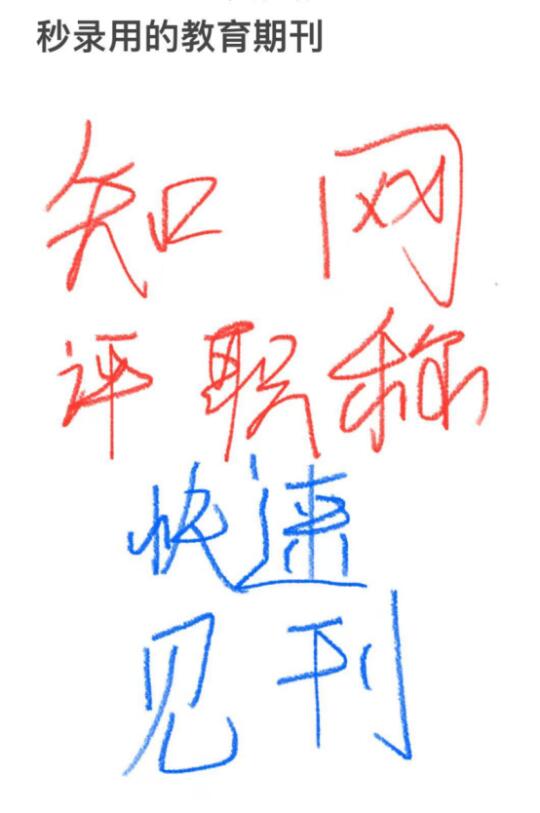 秒录用的教育期刊
知网
评职称
快速
见刊